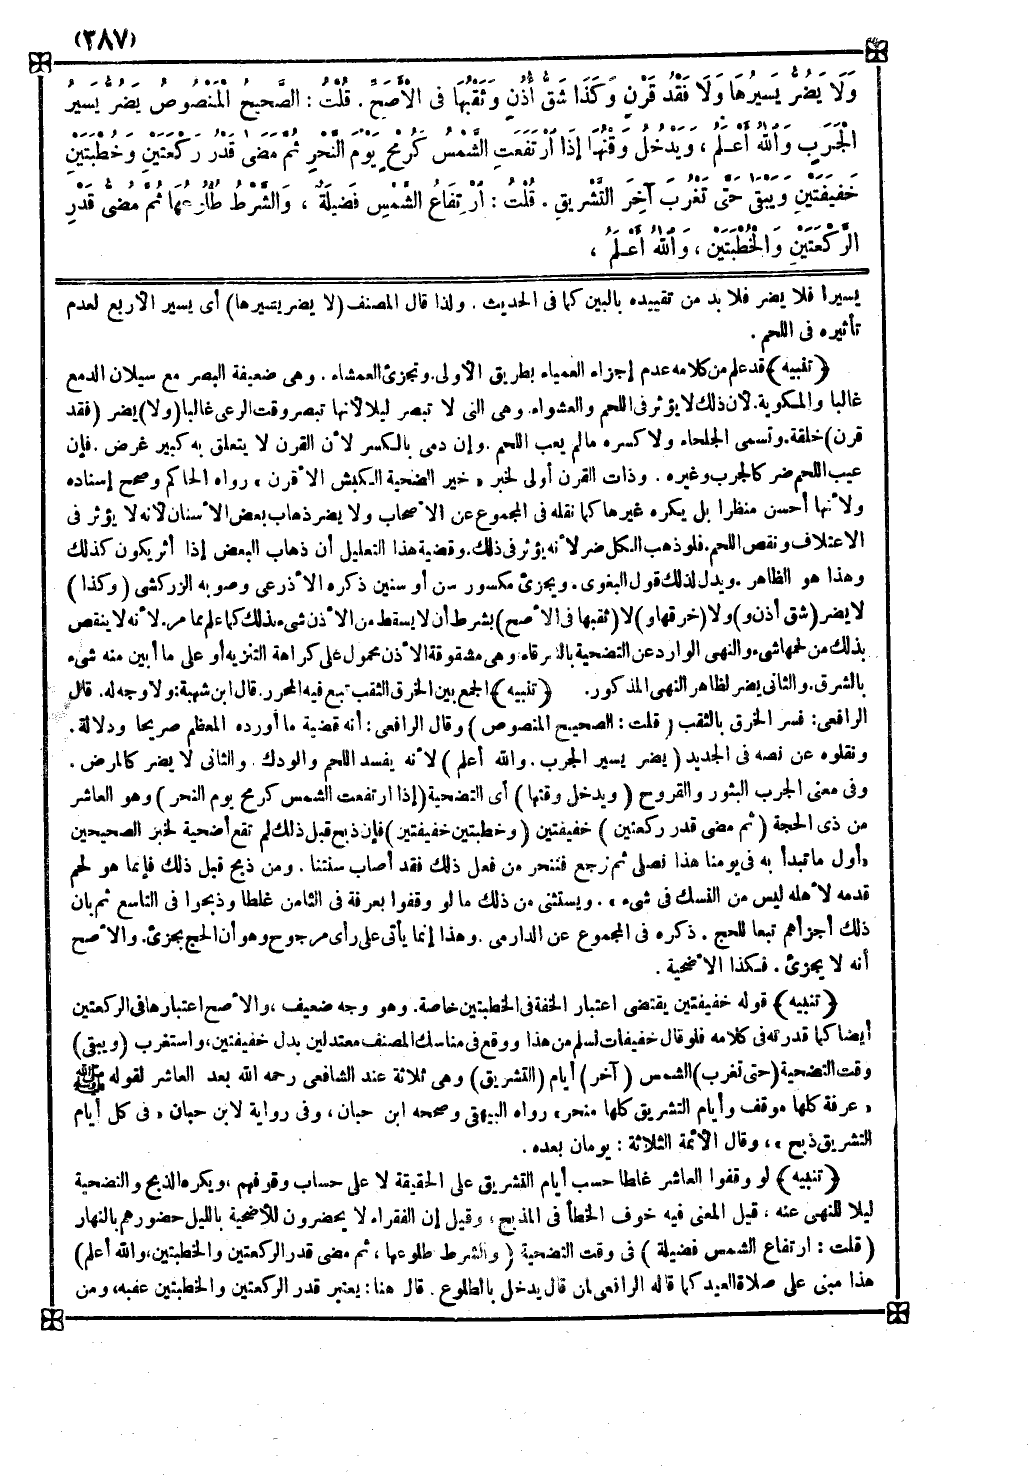 (٣٨٧)
وَلَا يَضُرُّ يَسِيرُهَا وَلَا فَقْدُ قَرْنٍ وَكَذَا شَقُّ أُذُنٍ وَثَقْبُهَا فِى الْأَصَحِّ . قُلْتُ : الصَّحِيحُ الْمَنْصُوصُ يَضُرُّ يَسِيرُ
الْجَرَبِ وَاللهُ أَعْلَمُ ، وَيَدْخُلُ وَقْتُهَا إِذَا ارْتَفَعَتِ الشَّمْسُ كَرُمْحٍ يَوْمَ النَّحْرِ ثُمَّ مَضَى قَدْرُ رَكْعَتَيْنِ وَخُطْبَتَيْنِ
خَفِيفَتَيْنِ وَيَبْقَى حَتَّى تَغْرُبَ آخِرَ التَّشْرِيقِ . قُلْتُ : ارْتِفَاعُ الشَّمْسِ فَضِيلَةٌ ، وَالشَّرْطُ طُلُوعُهَا ثُمَّ مُضِىُّ قَدْرِ
الرَّكْعَتَيْنِ وَالْخُطْبَتَيْنِ ، وَاللهُ أَعْلَمُ ،
يسيرا فلا يضر فلا بد من تقييده بالبين كما فى الحديث . ولذا قال المصنف (لا يضر يسيرها) أى يسير الأربع لعدم
تأثيره فى اللحم .
﴿تنبيه﴾ قد علم من كلامه عدم إجزاء العمياء بطريق الأولى. وتجزئ العمشاء . وهى ضعيفة البصر مع سيلان الدمع
غالبا والمكوية. لأن ذلك لا يؤثر فى اللحم والعشواء. وهى التى لا تبصر ليلا لأنها تبصر وقت الرعى غالبا (ولا) يضر (فقد
قرن) خلقة. وتسمى الجلحاء ولا كسره ما لم يعب اللحم . وإن دمى بالكسر لأن القرن لا يتعلق به كبير غرض . فإن
عيب اللحم ضر كالجرب وغيره . وذات القرن أولى لخبر « خير الضحية الكبش الأقرن » رواه الحاكم وصحح إسناده
ولأنها أحسن منظرا بل يكره غيرها كما نقله فى المجموع عن الأصحاب ولا يضر ذهاب بعض الأسنان لأنه لا يؤثر فى
الاعتلاف ونقص اللحم. فلو ذهب الكل ضر لأنه يؤثر فى ذلك. وقضية هذا التعليل أن ذهاب البعض إذا أثر يكون كذلك
وهذا هو الظاهر . ويدل لذلك قول البغوى . ويجزئ مكسور سن أو سنين ذكره الأذرعى وصوبه الزركشى (وكذا)
لا يضر (شق أذن و) ولا (خرقها و) لا (ثقبها فى الأصح) بشرط أن لا يسقط من الأذن شىء بذلك كما علم مما مر. لأنه لا ينقص
بذلك من لحمها شىء والنهى الوارد عن التضحية بالشرقاء وهى مشقوقة الأذن محمول على كراهة التنزيه أو على ما أبين منه شىء
بالشرق. والثانى يضر لظاهر النهى المذكور. ﴿تنبيه﴾ الجمع بين الخرق الثقب تبع فيه المحرر. قال ابن شهبة: ولا وجه له. قال
الرافعى: فسر الخرق بالثقب (قلت : الصحيح المنصوص) وقال الرافعى: أنه قضية ما أورده المعظم صريحا ودلالة.
ونقلوه عن نصه فى الجديد (يضر يسير الجرب . والله أعلم) لأنه يفسد اللحم والودك . والثانى لا يضر كالمرض .
وفى معنى الجرب البثور والقروح (ويدخل وقتها) أى التضحية (إذا ارتفعت الشمس كرمح يوم النحر) وهو العاشر
من ذى الحجة (ثم مضى قدر ركعتين) خفيفتين (وخطبتين خفيفتين) فإن ذبح قبل ذلك لم تقع أضحية لخبر الصحيحين
«أول ما نبدأ به فى يومنا هذا نصلى ثم نرجع فننحر من فعل ذلك فقد أصاب سنتنا . ومن ذبح قبل ذلك فإنما هو لحم
قدمه لأهله ليس من النسك فى شىء » . ويستثنى من ذلك ما لو وقفوا بعرفة فى الثامن غلطا وذبحوا فى التاسع ثم بان
ذلك أجزأهم تبعا للحج . ذكره فى المجموع عن الدارمى . وهذا إنما يأتى على رأى مرجوح وهو أن الحج يجزئ. والأصح
أنه لا يجزئ . فكذا الأضحية .
﴿تنبيه﴾ قوله خفيفتين يقتضى اعتبار الخفة فى الخطبتين خاصة. وهو وجه ضعيف ، والأصح اعتبارها فى الركعتين
أيضا كما قدرته فى كلامه فلو قال خفيفات لسلم من هذا ووقع فى مناسك المصنف معتدلين بدل خفيفتين، واستغرب (ويبقى)
وقت التضحية (حتى تغرب) الشمس (آخر) أيام (التشريق) وهى ثلاثة عند الشافعى رحمه الله بعد العاشر لقوله ﷺ
« عرفة كلها موقف وأيام التشريق كلها منحر» رواه البيهقى وصححه ابن حبان ، وفى رواية لابن حبان « فى كل أيام
التشريق ذبح » ، وقال الأئمة الثلاثة : يومان بعده .
﴿تنبيه﴾ لو وقفوا العاشر غلطا حسب أيام التشريق على الحقيقة لا على حساب وقوفهم ، ويكره الذبح والتضحية
ليلا للنهى عنه ، قيل المعنى فيه خوف الخطأ فى المذبح ، وقيل إن الفقراء لا يحضرون للأضحية بالليل حضورهم بالنهار
(قلت : ارتفاع الشمس فضيلة) فى وقت التضحية (والشرط طلوعها ، ثم مضى قدر الركعتين والخطبتين، والله أعلم)
هذا مبنى على صلاة العيد كما قاله الرافعى إن قال يدخل بالطلوع . قال هنا : يعتبر قدر الركعتين والخطبتين عقبه، ومن